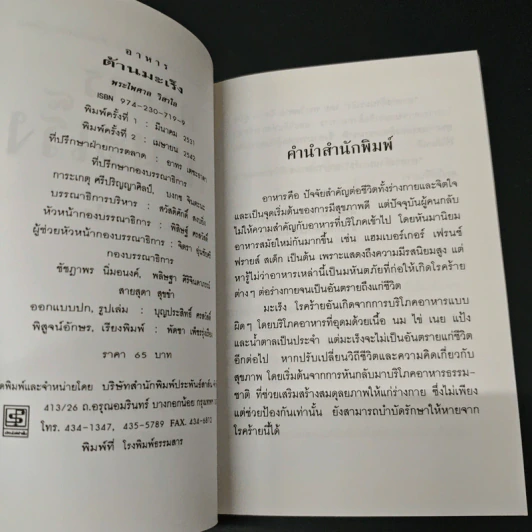 อาหาร
ต้านมะเร็ง
พระไพศาล วิสาโล
ISBN 974-230-719-9
พิมพ์ครั้งที่ 1 : มีนาคม 2531
พิมพ์ครั้งที่ 2 : เมษายน 2542
ที่ปรึกษาฝ่ายการตลาด : อาทร
ที่ปรึกษากองบรรณาธิการ
การะเกตุ ศรีปริญญาศิลป์, บงกช
บรรณาธิการบริหาร : สวัสดิศักดิ์
หัวหน้ากองบรรณาธิการ : พิสิษฐ์
ผู้ช่วยหัวหน้ากองบรรณาธิการ : จิตรา
กองบรรณาธิการ
ชัชฎาพร นิ่มอนงค์, พลิษฐา
สายสุดา สุขขำ
ออกแบบปก, รูปเล่ม : บุญประสิทธิ์
พิสูจน์อักษร, เรียงพิมพ์ : พัตชา
ราคา 65 บาท
ดพิมพ์และจำหน่ายโดย บริษัทสำนักพิมพ์ประพันธ์สาส์น
413/26 ถ.อรุณอมรินทร์ บางกอกน้อย กรุงเทพฯ
โทร. 434-1347, 435-5789 FAX.
พิมพ์ที่ โรงพิมพ์ธรรมสาร
คำนำสำนักพิมพ์
อาหารคือ ปัจจัยสำคัญต่อชีวิตทั้งร่างกายและจิตใจ
และเป็นจุดเริ่มต้นของการมีสุขภาพดี แต่ปัจจุบันผู้คนกลับ
ไม่ให้ความสำคัญกับอาหารที่บริโภคเข้าไป โดยหันมานิยม
อาหารสมัยใหม่กันมากขึ้น เช่น แฮมเบอร์เกอร์ เฟรนช์
ฟรายส์ สเต็ก เป็นต้น เพราะแสดงถึงความมีรสนิยมสูง แต่
หารู้ไม่ว่าอาหารเหล่านี้เป็นมหันตภัยที่ก่อให้เกิดโรคร้าย
ต่างๆ ต่อร่างกายจนเป็นอันตรายถึงแก่ชีวิต
มะเร็ง โรคร้ายอันเกิดจากการบริโภคอาหารแบบ
ผิดๆ โดยบริโภคอาหารที่อุดมด้วยเนื้อ นม ไข่ เนย แป้ง
และน้ำตาลเป็นประจำ แต่มะเร็งจะไม่เป็นอันตรายแก่ชีวิต
อีกต่อไป หากปรับเปลี่ยนวิถีชีวิตและความคิดเกี่ยวกับ
สุขภาพ โดยเริ่มต้นจากการหันกลับมาบริโภคอาหารธรรม-
ชาติ ที่ช่วยเสริมสร้างสมดุลยภาพให้แก่ร่างกาย ซึ่งไม่เพียง
แต่ช่วยป้องกันเท่านั้น ยังสามารถบำบัดรักษาให้หายจาก
โรคร้ายนี้ได้